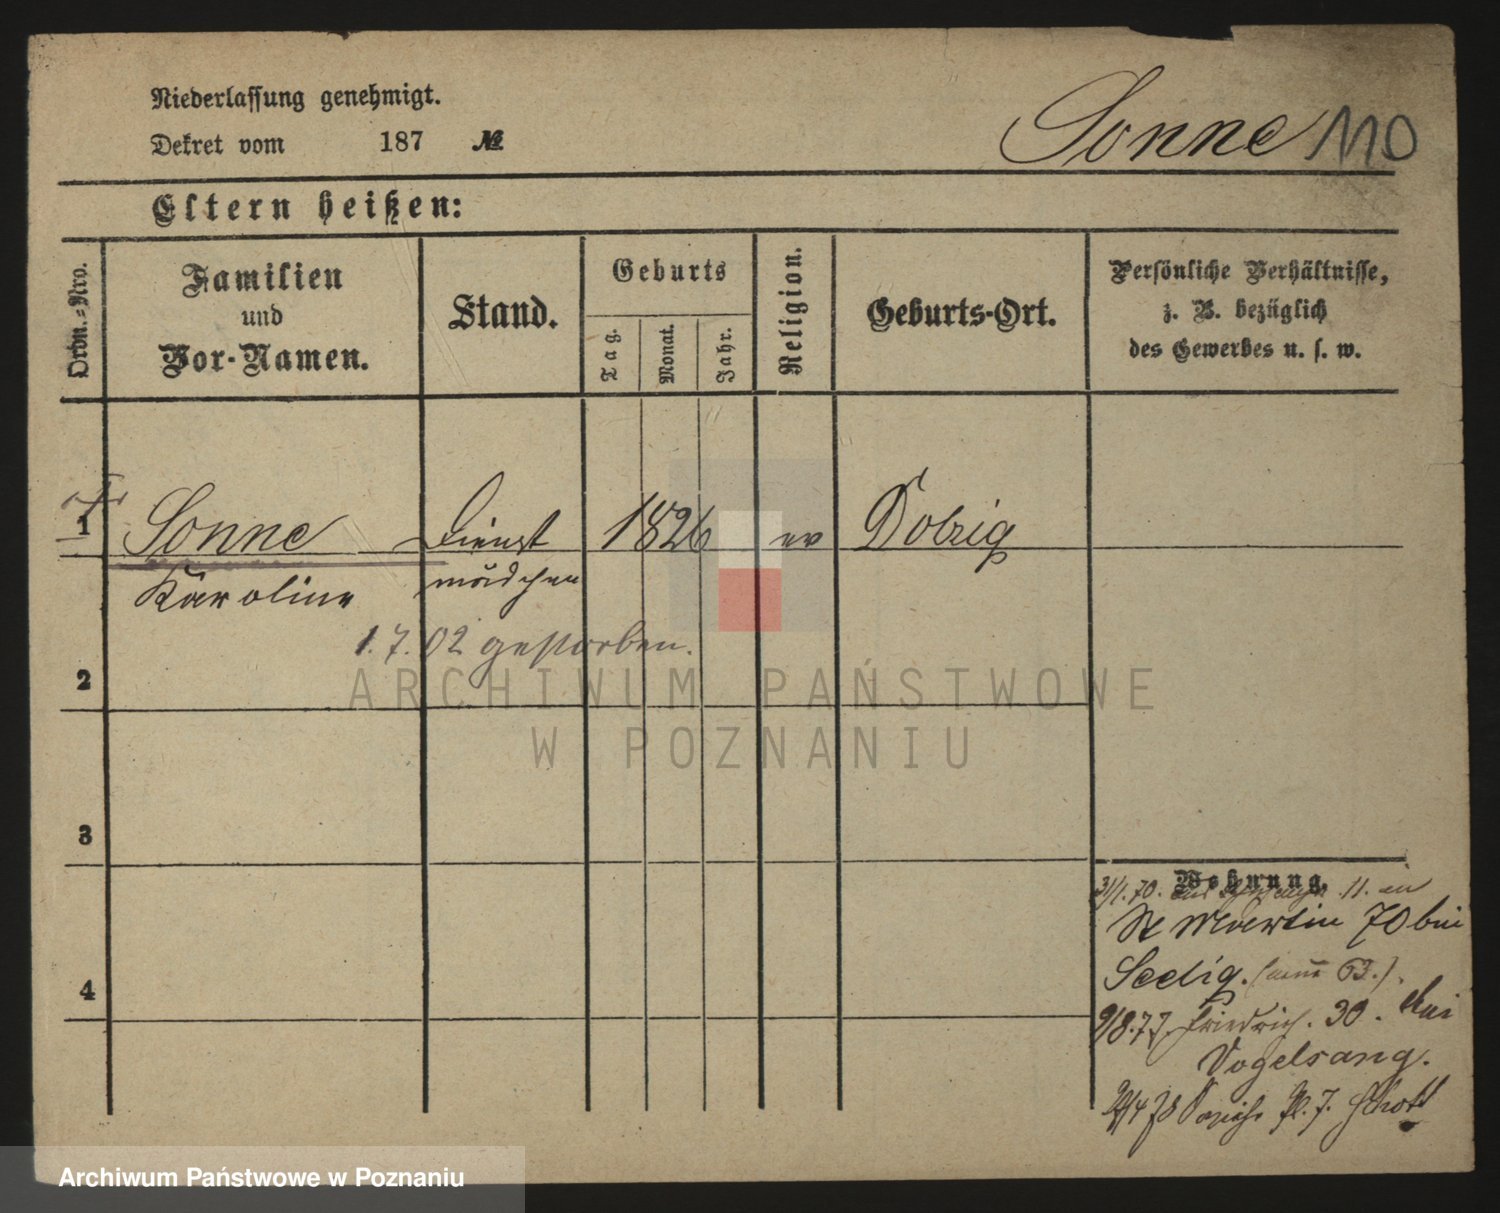 Niederlassung genehmigt.
Dekret vom 187 №
Sonne 110
Eltern heißen:
Ordn.-Nro.
Familien
und
Vor-Namen.
Stand.
Geburts
Tag.
Monat.
Jahr.
Religion.
Geburts-Ort.
Persönliche Verhältnisse,
z. B. bezüglich
des Gewerbes u. s. w.
1 Sonne Dienst 1826 ev Dobrig
Karoline mädchen
1.7.02 gestorben.
2
3
4
Wohnung.
31/1.70. 11. in
St Martin 70 bei
Seelig. 63.)
9/8.77. Friedrich. 30. bei
Vogelsang.
7. Schott
ARCHIWUM PAŃSTWOWE
W POZNANIU
Archiwum Państwowe w Poznaniu